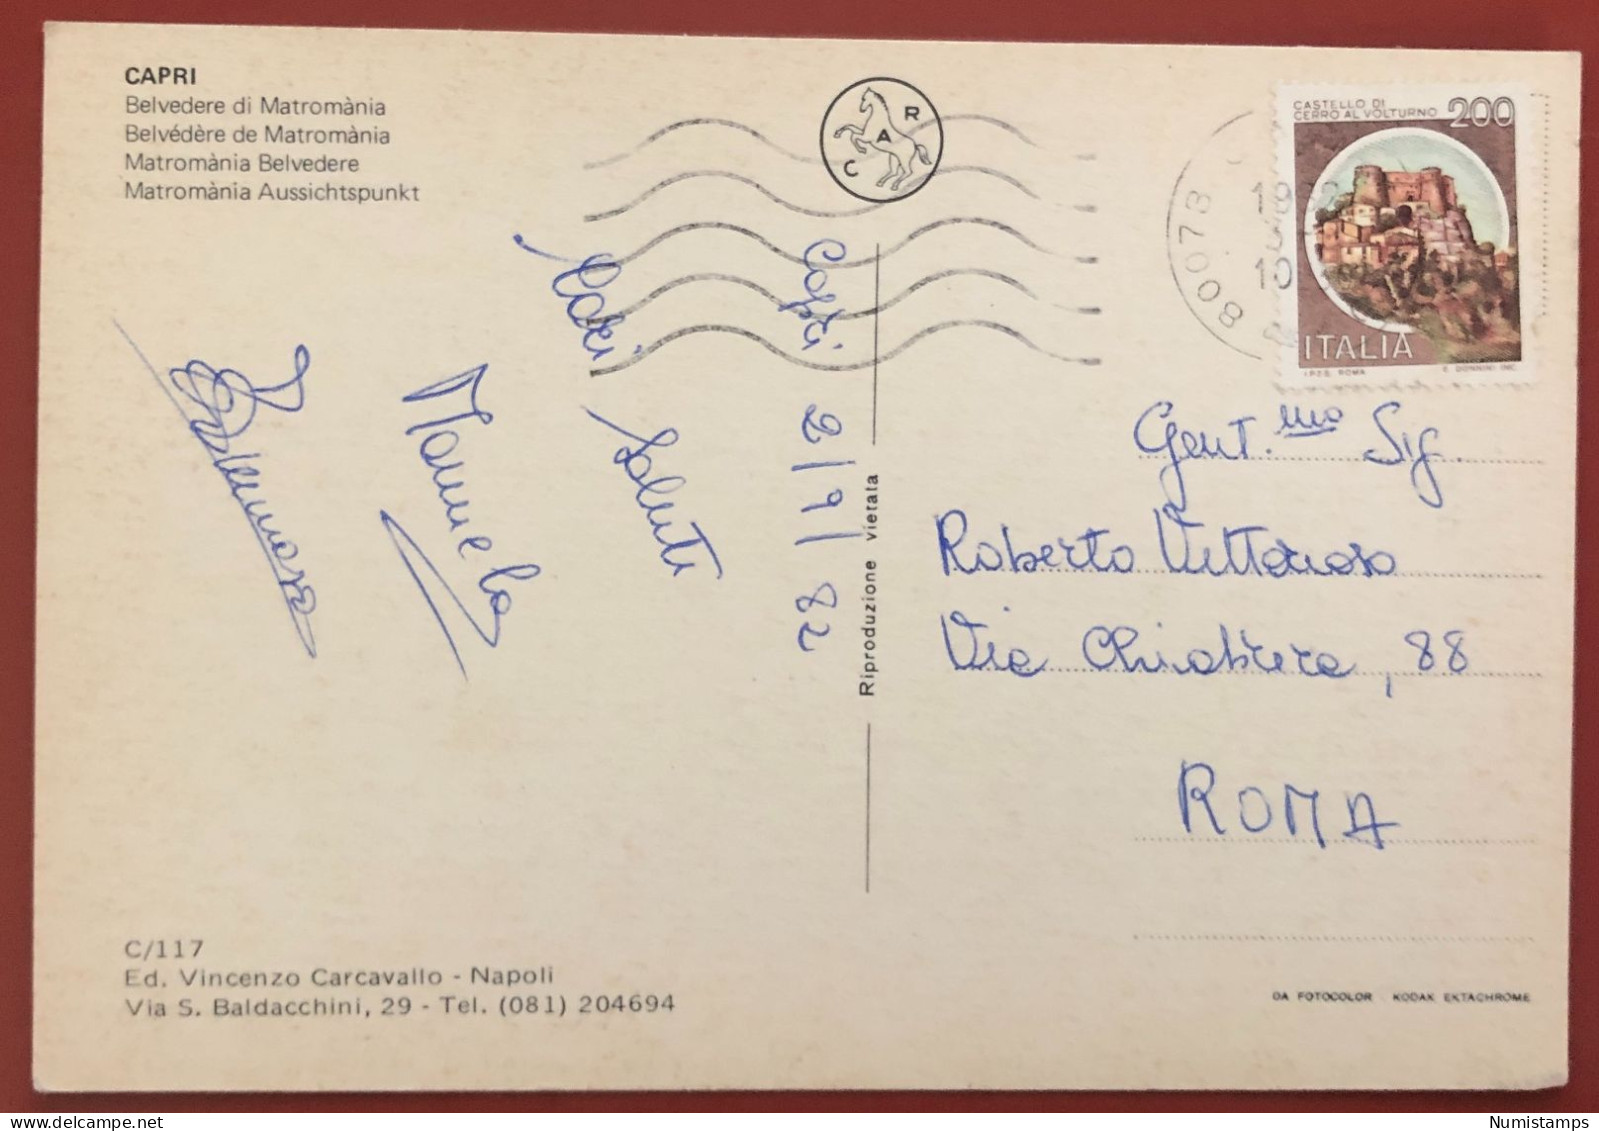 CAPRI
Belvedere di Matromània
Belvédère de Matromània
Matromània Belvedere
Matromània Aussichtspunkt
C A R
CASTELLO DI
CERRO AL VOLTURNO 200
ITALIA
I.P.Z.S. ROMA E. DONNINI INC.
80073
1982
10
Capri 2/9/82
Cari
Saluti
Manuela
Gent.mo Sig.
Roberto Vittorioso
Via Chiabrera, 88
ROMA
Riproduzione vietata
C/117
Ed. Vincenzo Carcavallo - Napoli
Via S. Baldacchini, 29 - Tel. (081) 204694
DA FOTOCOLOR KODAK EKTACHROME
Numistamps